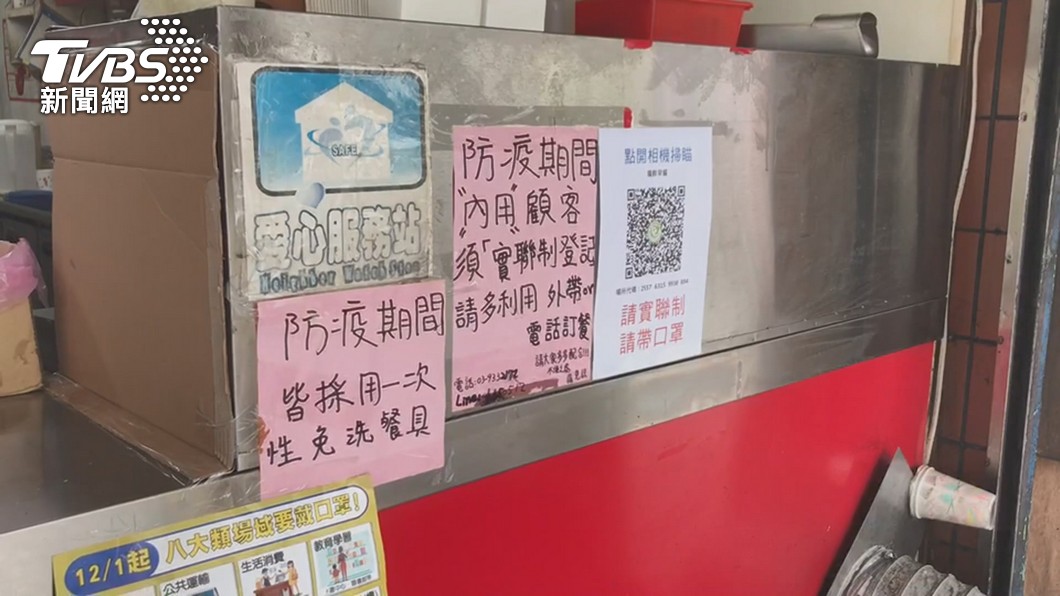 TVBS
新聞網
SAFE
愛心服務站
Neighbor Watch Stop
防疫期間
"內用"顧客
須「實」聯制登記
請多利用 外帶or
電話訂餐
請大家多多配合!!!
點開相機掃瞄
請實聯制
請帶口罩
防疫期間
皆採用一次
性免洗餐具
12/1起 八大類場域要戴口罩!
公共運輸
生活消費
教育學習